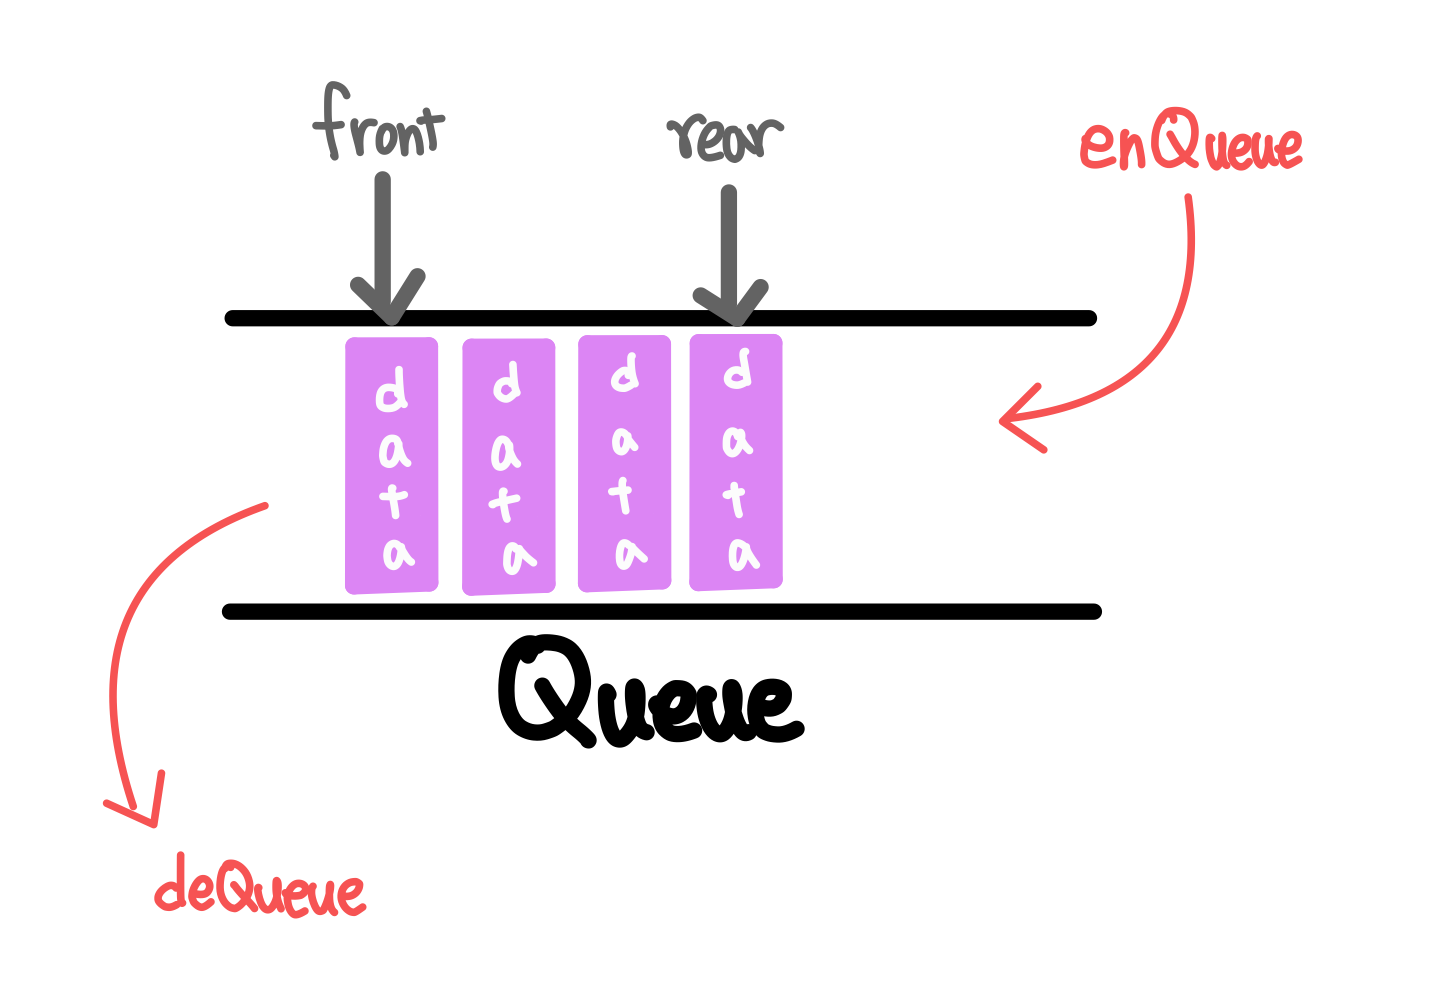 front
rear
enQueue
data
data
data
data
Queue
deQueue